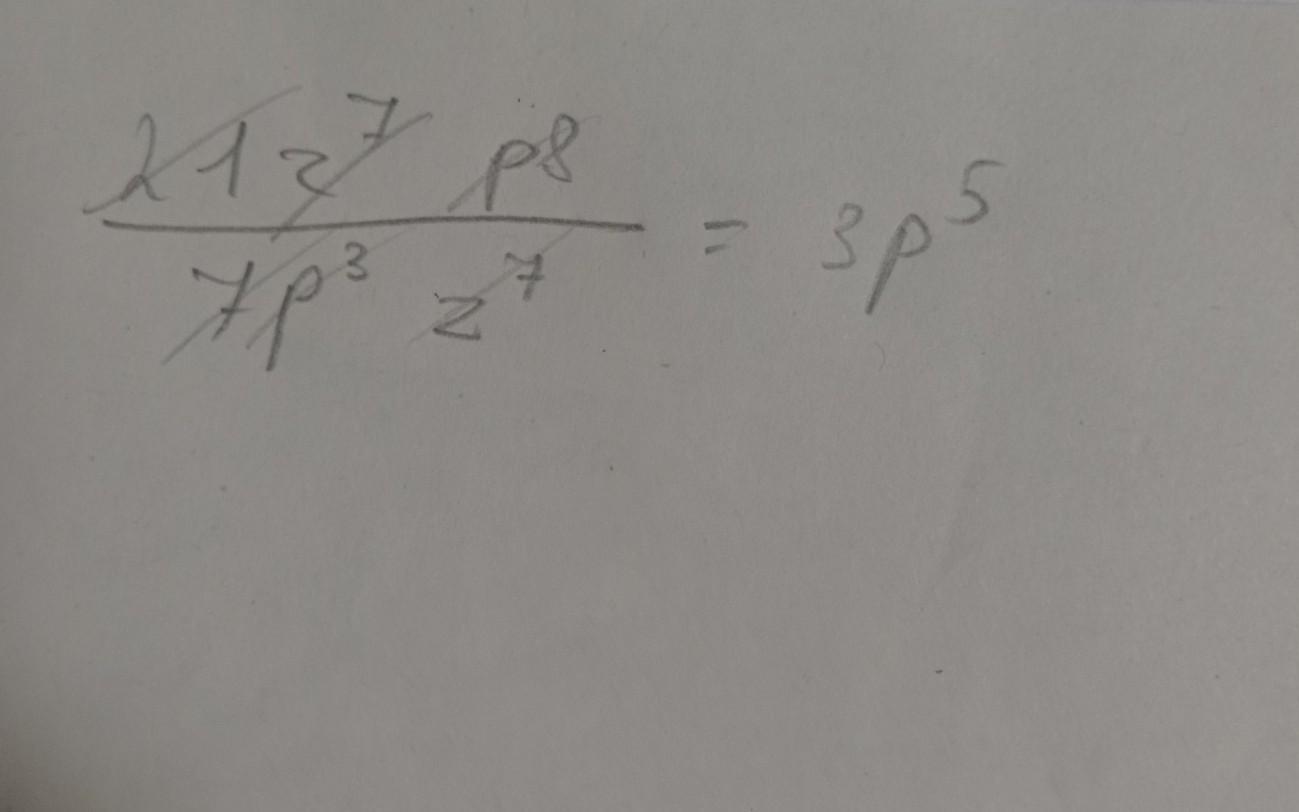 21z⁷ p⁸ / 7p³ z⁷ = 3p⁵